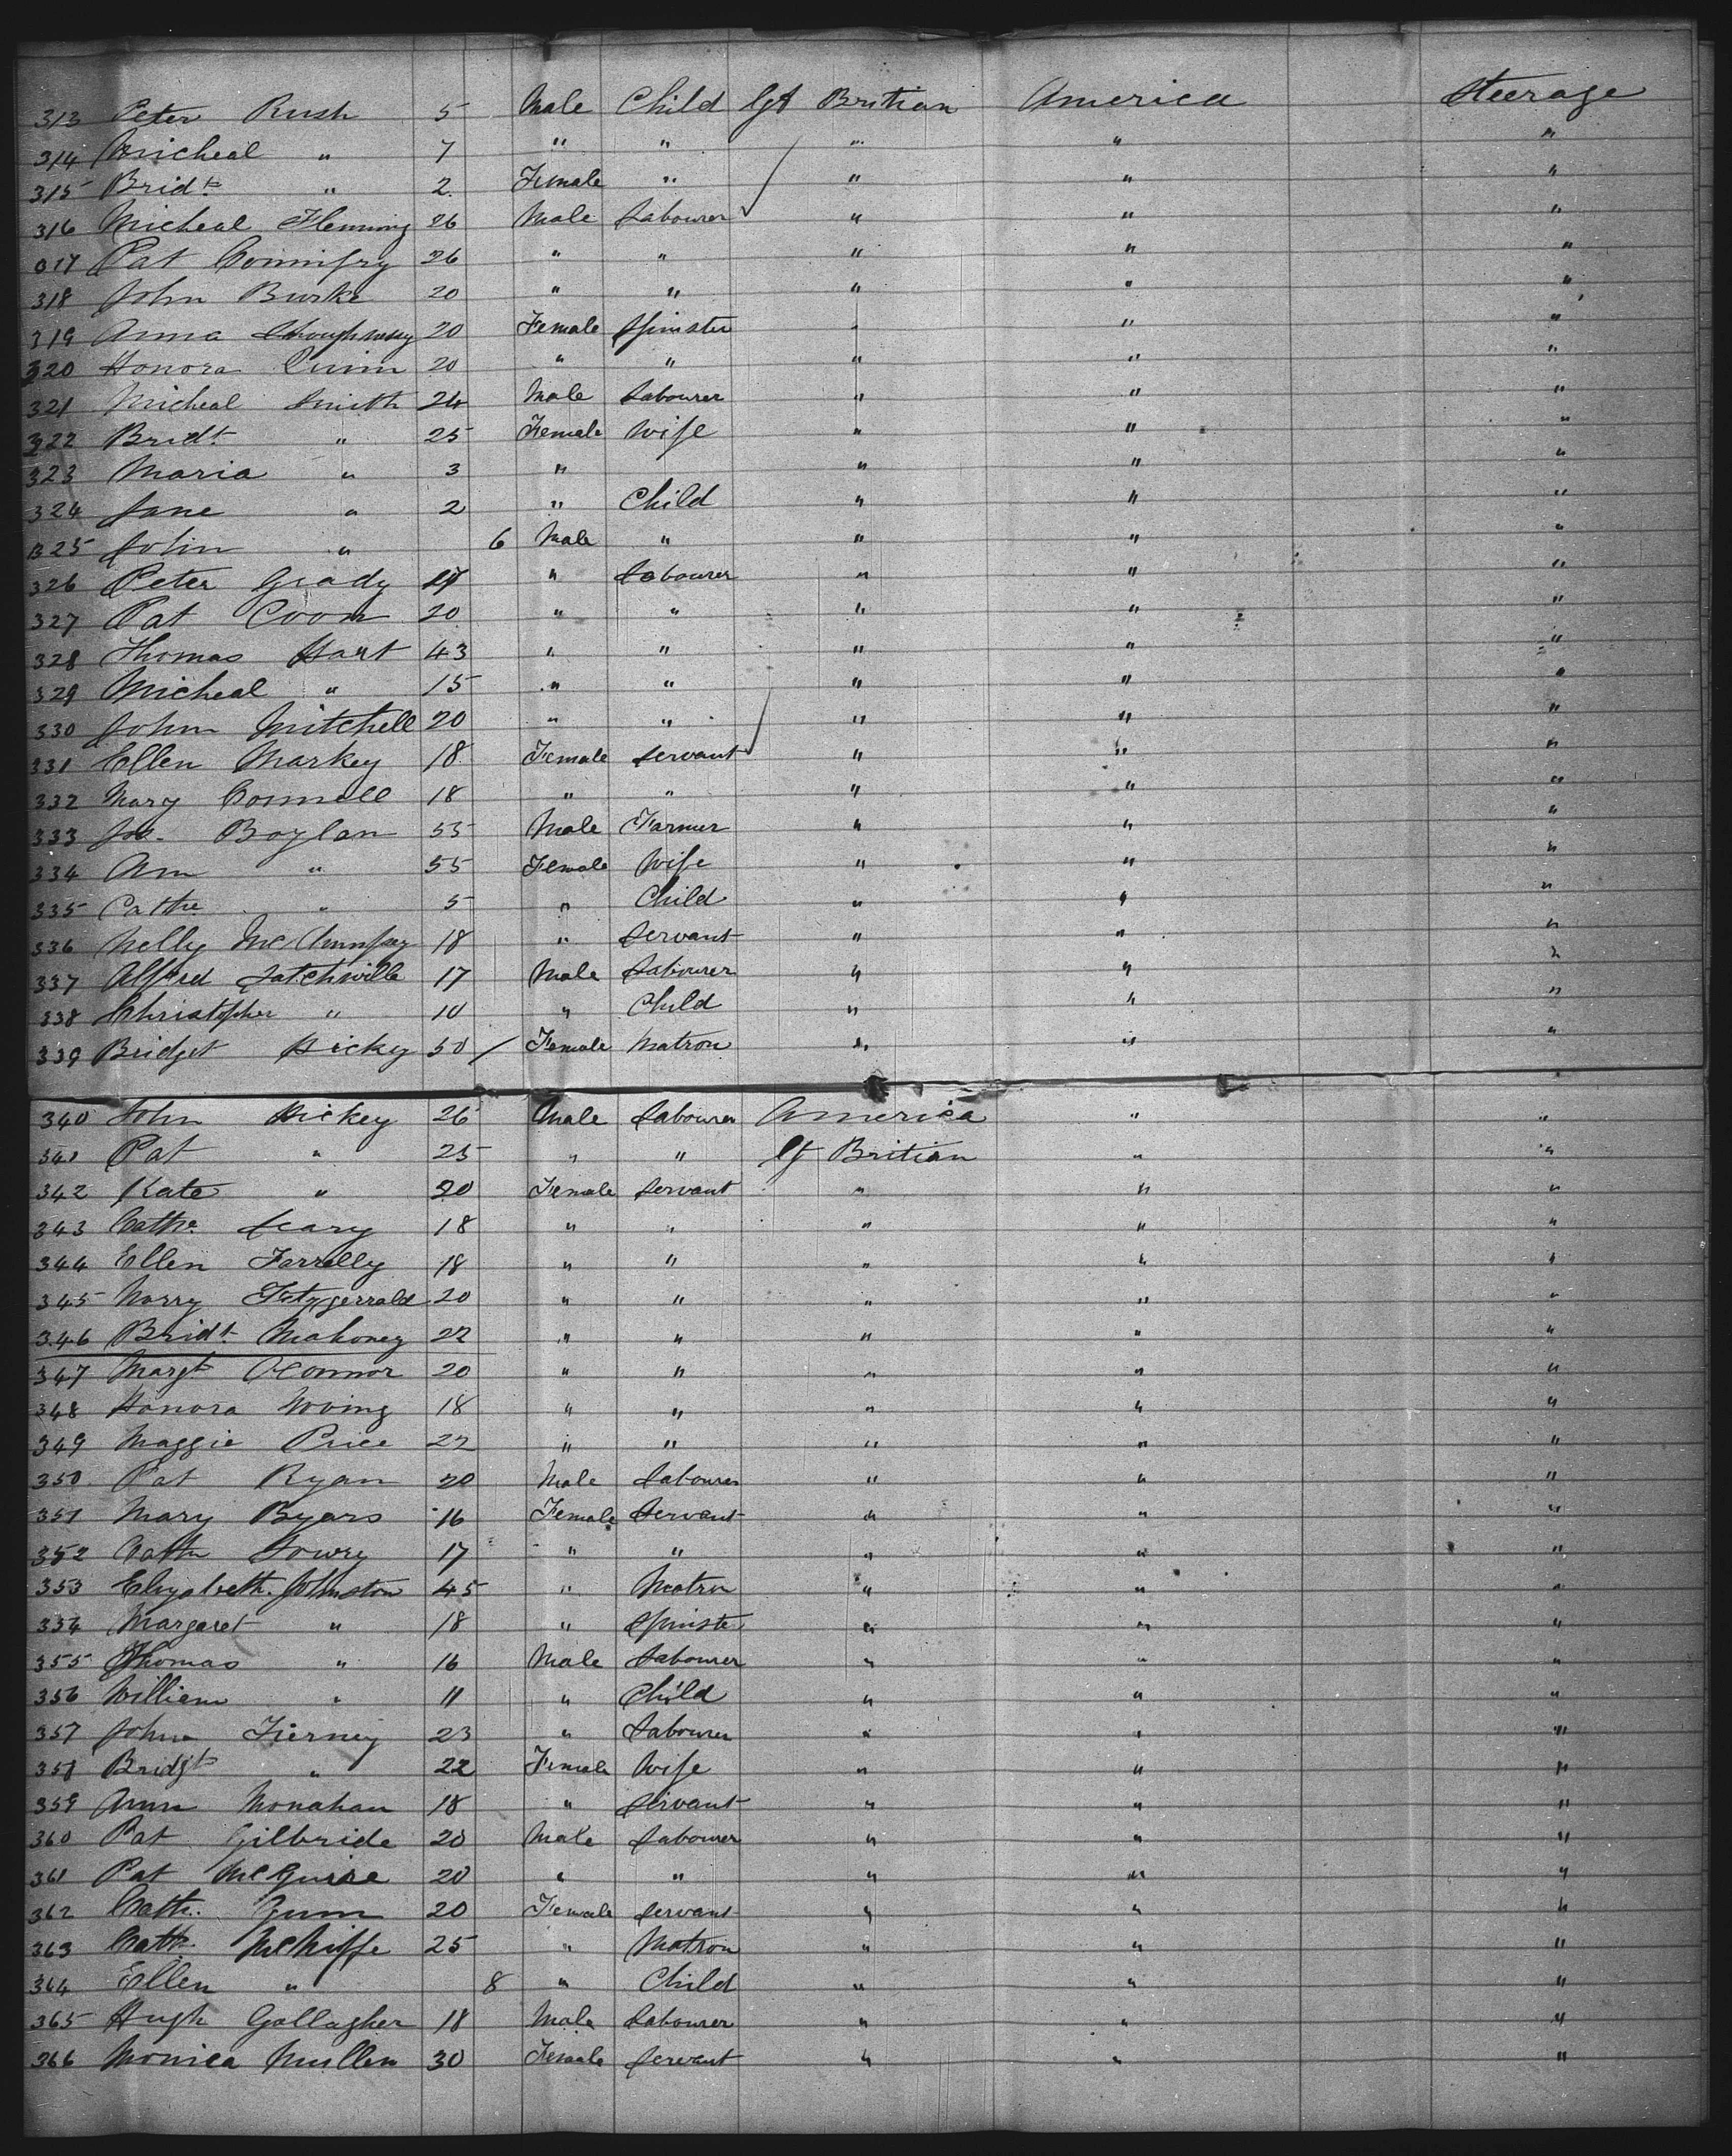 313 Peter Rush 5 Male Child Gt Britian America Steerage
314 Micheal " 7 " " " " "
315 Bridt " 2 Female " " " "
316 Micheal Fleming 26 Male Labourer " " "
317 Pat 26 " " " " "
318 John Burke 20 " " " " "
319 Anna 20 Female Spinster " " "
320 Honora Quinn 20 " " " " "
321 Micheal Smith 24 Male Labourer " " "
322 Bridt " 25 Female Wife " " "
323 Maria " 3 " " " "
324 Jane " 2 " Child " " "
325 John " 6 Male " " " "
326 Peter Grady " Labourer " " "
327 Pat Coon 20 " " " " "
328 Thomas Hart 43 " " " " "
329 Micheal " 15 " " " " "
330 John Mitchell 20 " " " " "
331 Ellen Markey 18 Female Servant " " "
332 Mary Connell 18 " " " " "
333 Boylan 55 Male Farmer " " "
334 Ann " 55 Female Wife " " "
335 Cathe " 5 " Child " " "
336 Nelly 18 " Servant " " "
337 Alfred 17 Male Labourer " " "
338 Christopher " 10 " Child " " "
339 Bridget Hicky 50 / Female Matron " " "
340 John Hickey 26 Male Labourer America " "
341 Pat " 25 " " Gt Britian " "
342 Kate " 20 Female Servant " " "
343 Cathe. Leary 18 " " " " "
344 Ellen Farrelly 18 " " " " "
345 Norry Fitzgerrald 20 " " " " "
346 Bridt. Mahoney 22 " " " " "
347 Margt OConnor 20 " " " " "
348 Honora 18 " " " " "
349 Maggie Price 22 " " " " "
350 Pat Ryan 20 Male Labourer " " "
351 Mary Byars 16 Female Servant " " "
352 Cathe Lowry 17 " " " " "
353 Elizabeth Johnston 45 " Matron " " "
354 Margaret " 18 " Spinster " " "
355 Thomas " 16 Male Labourer " " "
356 William " 11 " Child " " "
357 John Tierney 23 " Labourer " " "
358 Bridgt " 22 Female Wife " " "
359 Ann Monahan 18 " Servant " " "
360 Pat Gilbride 20 Male Labourer " " "
361 Pat McGuire 20 " " " " "
362 Cath. Gunn 20 Female Servant " " "
363 Cath. McKiffe 25 " Matron " " "
364 Ellen " 8 " Child " " "
365 Hugh Gallagher 18 Male Labourer " " "
366 Monica Mullen 30 Female Servant " " "